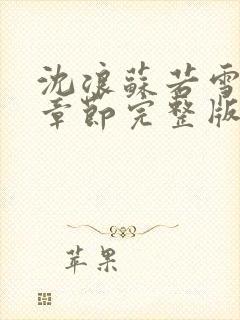 沈浪苏若雪
章节完整版
苹果